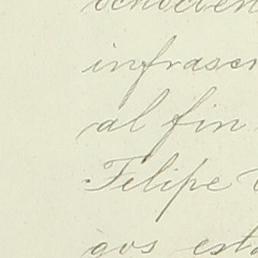 infrascr
al fin
Felipe
gos esta